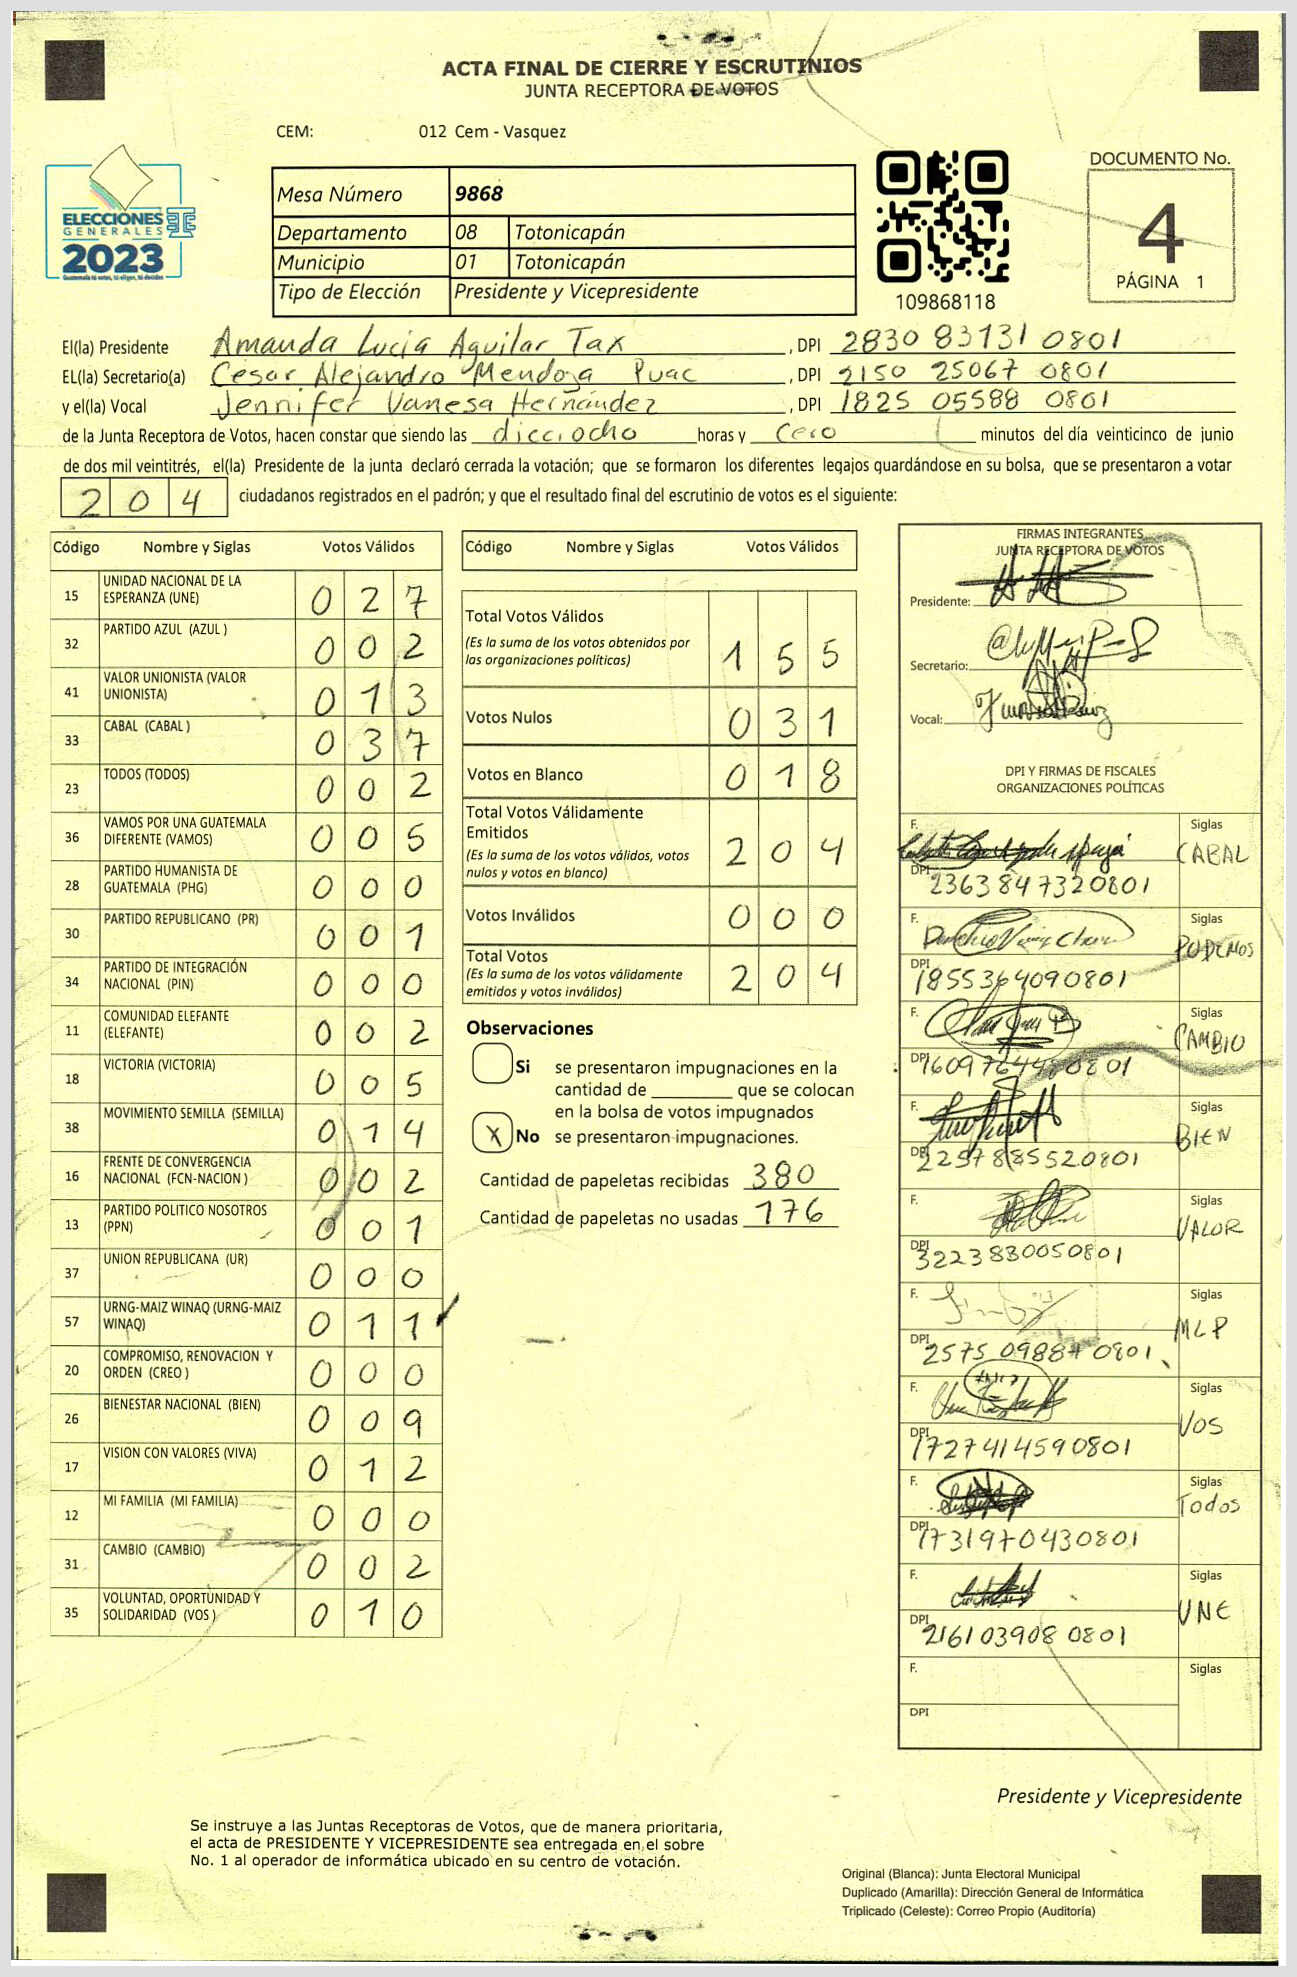 ACTA FINAL DE CIERRE Y ESCRUTINIOS
JUNTA RECEPTORA DE VOTOS
CEM: 012 Cem - Vasquez
ELECCIONES
GENERALES
2023
Mesa Número 9868
Departamento 08 Totonicapán
Municipio 01 Totonicapán
Tipo de Elección Presidente y Vicepresidente
109868118
DOCUMENTO No.
4
PÁGINA 1
El(la) Presidente Amanda Lucia Aguilar Tax , DPI 2830 83131 0801
EL(la) Secretario(a) Cesar Alejandro Mendoza Puac , DPI 2150 25067 0801
y el(la) Vocal Jennifer Vanesa Hernández , DPI 1825 05588 0801
de la Junta Receptora de Votos, hacen constar que siendo las dieciocho horas y cero minutos del día veinticinco de junio
de dos mil veintitrés, el(la) Presidente de la junta declaró cerrada la votación; que se formaron los diferentes legajos guardándose en su bolsa, que se presentaron a votar
204 ciudadanos registrados en el padrón; y que el resultado final del escrutinio de votos es el siguiente:
Código Nombre y Siglas Votos Válidos
15 UNIDAD NACIONAL DE LA ESPERANZA (UNE) 027
32 PARTIDO AZUL (AZUL ) 002
41 VALOR UNIONISTA (VALOR UNIONISTA) 013
33 CABAL (CABAL ) 037
23 TODOS (TODOS) 002
36 VAMOS POR UNA GUATEMALA DIFERENTE (VAMOS) 005
28 PARTIDO HUMANISTA DE GUATEMALA (PHG) 000
30 PARTIDO REPUBLICANO (PR) 001
34 PARTIDO DE INTEGRACIÓN NACIONAL (PIN) 000
11 COMUNIDAD ELEFANTE (ELEFANTE) 002
18 VICTORIA (VICTORIA) 005
38 MOVIMIENTO SEMILLA (SEMILLA) 014
16 FRENTE DE CONVERGENCIA NACIONAL (FCN-NACION ) 002
13 PARTIDO POLITICO NOSOTROS (PPN) 001
37 UNION REPUBLICANA (UR) 000
57 URNG-MAIZ WINAQ (URNG-MAIZ WINAQ) 011
20 COMPROMISO, RENOVACION Y ORDEN (CREO ) 000
26 BIENESTAR NACIONAL (BIEN) 009
17 VISION CON VALORES (VIVA) 012
12 MI FAMILIA (MI FAMILIA) 000
31 CAMBIO (CAMBIO) 002
35 VOLUNTAD, OPORTUNIDAD Y SOLIDARIDAD (VOS ) 010
Código Nombre y Siglas Votos Válidos
Total Votos Válidos
(Es la suma de los votos obtenidos por las organizaciones políticas) 155
Votos Nulos 031
Votos en Blanco 018
Total Votos Válidamente Emitidos
(Es la suma de los votos válidos, votos nulos y votos en blanco) 204
Votos Inválidos 000
Total Votos
(Es la suma de los votos válidamente emitidos y votos inválidos) 204
Observaciones
Si se presentaron impugnaciones en la
cantidad de ________ que se colocan
en la bolsa de votos impugnados
X No se presentaron impugnaciones.
Cantidad de papeletas recibidas 380
Cantidad de papeletas no usadas 176
FIRMAS INTEGRANTES
JUNTA RECEPTORA DE VOTOS
Presidente:
Secretario:
Vocal:
DPI Y FIRMAS DE FISCALES
ORGANIZACIONES POLÍTICAS
F. Siglas CABAL
DPI 2363847320801
F. Siglas PODEMOS
DPI 1855364090801
F. Siglas CAMBIO
DPI 1609764480801
F. Siglas BIEN
DPI 2257885520801
F. Siglas VALOR
DPI 3223830050801
F. Siglas MLP
DPI 2575 09887 0801
F. Siglas VOS
DPI 1727414590801
F. Siglas Todos
DPI 1731970430801
F. Siglas UNE
DPI 216103908 0801
F. Siglas
DPI
Presidente y Vicepresidente
Se instruye a las Juntas Receptoras de Votos, que de manera prioritaria,
el acta de PRESIDENTE Y VICEPRESIDENTE sea entregada en el sobre
No. 1 al operador de informática ubicado en su centro de votación.
Original (Blanca): Junta Electoral Municipal
Duplicado (Amarilla): Dirección General de Informática
Triplicado (Celeste): Correo Propio (Auditoría)